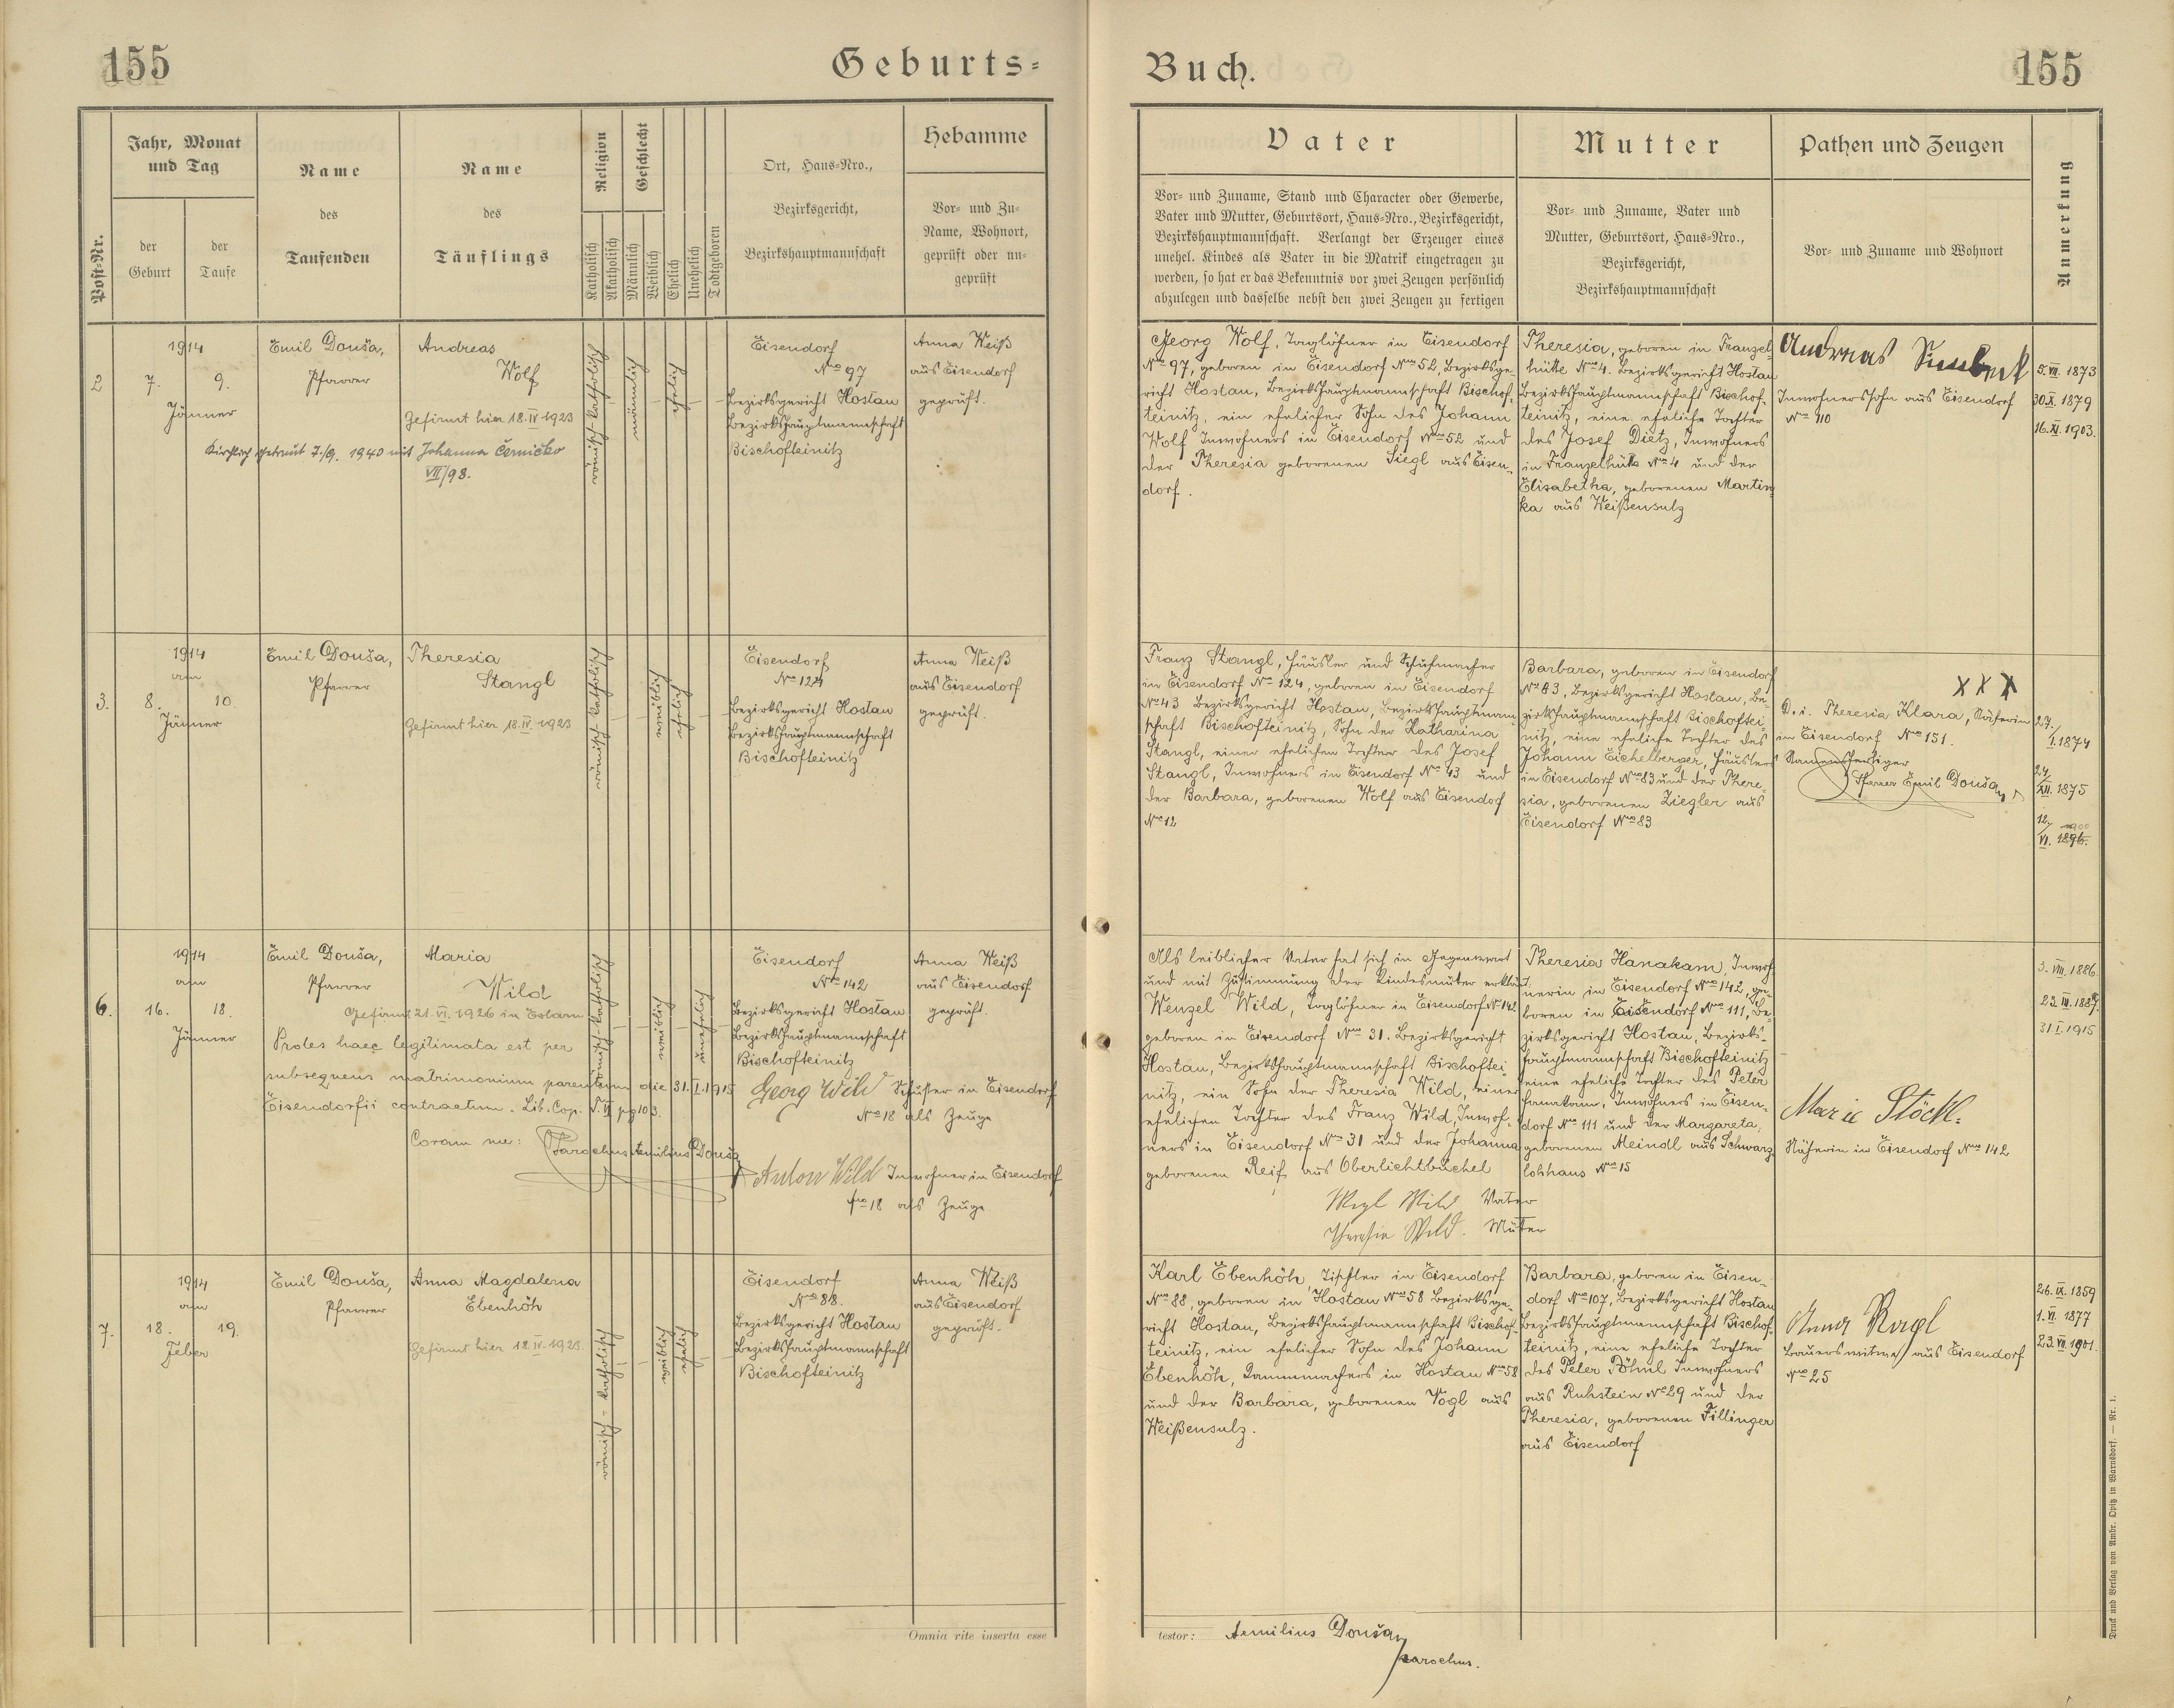 155
Geburts-
Buch.
155
Post-Nr.
Jahr, Monat
und Tag
der
Geburt
der
Taufe
Name
des
Taufenden
Name
des
Täuflings
Religion
Katholisch
Akatholisch
Geschlecht
Männlich
Weiblich
Ehelich
Unehelich
Todtgeboren
Ort, Haus-Nro.,
Bezirksgericht,
Bezirkshauptmannschaft
Hebamme
Vor- und Zu-
Name, Wohnort,
geprüft oder un-
geprüft
Vater
Vor- und Zuname, Stand und Character oder Gewerbe,
Vater und Mutter, Geburtsort, Haus-Nro., Bezirksgericht,
Bezirkshauptmannschaft. Verlangt der Erzeuger eines
unehel. Kindes als Vater in die Matrik eingetragen zu
werden, so hat er das Bekenntnis vor zwei Zeugen persönlich
abzulegen und dasselbe nebst den zwei Zeugen zu fertigen
Mutter
Vor- und Zuname, Vater und
Mutter, Geburtsort, Haus-Nro.,
Bezirksgericht,
Bezirkshauptmannschaft
Pathen und Zeugen
Vor- und Zuname und Wohnort
Anmerkung
2
1914
7. 9.
Jänner
Emil Douša,
Pfarrer
Andreas
Wolf
Gefirmt hier 18.IV.1923
Kirchlich getraut 7./9. 1940 mit Johanna Černičko
VII/98.
römisch-katholisch
männlich
ehelich
Eisendorf
Nro 97
Bezirksgericht Hostau
Bezirkshauptmannschaft
Bischofteinitz
Anna Weiß
aus Eisendorf
geprüft.
Georg Wolf, Taglöhner in Eisendorf
Nro 97, geboren in Eisendorf Nro 52, Bezirksge-
richt Hostau, Bezirkshauptmannschaft Bischof-
teinitz, ein ehelicher Sohn des Johann
Wolf Inwohners in Eisendorf Nro 52 und
der Theresia geborenen Siegl aus Eisen-
dorf.
Theresia, geboren in Franzel-
hütte Nro 4. Bezirksgericht Hostau
Bezirkshauptmannschaft Bischof-
teinitz, eine eheliche Tochter
des Josef Dietz, Inwohners
in Franzelhütte Nro 4 und der
Elisabetha, geborenen Martin-
ka aus Weißensulz
Andreas
Inwohnerssohn aus Eisendorf
Nro 110
5.VII. 1873
30.X. 1879
16.XI. 1903.
3.
1914
am
8. 10.
Jänner
Emil Douša,
Pfarrer
Theresia
Stangl
Gefirmt hier, 18.IV.1923
römisch-katholisch
weiblich
ehelich
Eisendorf
Nro 124
Bezirksgericht Hostau
Bezirkshauptmannschaft
Bischofteinitz
Anna Weiß
aus Eisendorf
geprüft.
Franz Stangl, Häusler und Schuhmacher
in Eisendorf Nro 124, geboren in Eisendorf
Nro 43 Bezirksgericht Hostau, Bezirkshauptmann-
schaft Bischofteinitz, Sohn der Katharina
Stangl, einer ehelichen Tochter des Josef
Stangl, Inwohners in Eisendorf Nro 43 und
der Barbara, geborenen Wolf aus Eisendorf
Nro 12
Barbara, geboren in Eisendorf
Nro 83, Bezirksgericht Hostau, Be-
zirkshauptmannschaft Bischoftei-
nitz, eine eheliche Tochter des
Johann Eichelberger, Häuslers
in Eisendorf Nro 83 und der There-
sia, geborenen Ziegler aus
Eisendorf Nro 83
X X X
D. i. Theresia Klara, Näherin
in Eisendorf Nro 151.
Namensfertiger
Pfarrer Emil Douša
27./
I.1874
24/
XII. 1875
12./ 1900
VI. 1896.
6.
1914
am
16. 18.
Jänner
Emil Douša,
Pfarrer
Maria
Wild
Gefirmt 21.VI.1926 in Eslarn
Proles haec legitimata est per
subsequens matrimonium parentum die 31.I.1915
Eisendorfii contractum. Lib. Cop. T. VI pg 103.
Coram me: Parochus Aemilius Douša
römisch-katholisch
weiblich
unehelich
Eisendorf
Nro 142
Bezirksgericht Hostau
Bezirkshauptmannschaft
Bischofteinitz
Georg Wild Schuster in Eisendorf
Nro 18 als Zeuge
Anton Wild Inwohner in Eisendorf
Nro 18 als Zeuge
Anna Weiß
aus Eisendorf
geprüft.
Als leiblicher Vater hat sich in Gegenwart
und mit Zustimmung der Kindesmutter erklärt
Wenzel Wild, Taglöhner in Eisendorf Nro 142
geboren in Eisendorf Nro 31. Bezirksgericht
Hostau, Bezirkshauptmannschaft Bischoftei-
nitz, ein Sohn der Theresia Wild, einer
ehelichen Tochter des Franz Wild, Inwoh-
ners in Eisendorf Nro 31 und der Johanna
geborenen Reif, aus Oberlichtbüchel
Wzl Wild Vater
Theresia Wild. Mutter
Theresia Hanakam, Inwoh-
nerin in Eisendorf Nro 142, ge-
boren in Eisendorf Nro 111, Be-
zirksgericht Hostau, Bezirks-
hauptmannschaft Bischofteinitz
eine eheliche Tochter des Peter
Hanakam, Inwohners in Eisen-
dorf Nro 111 und der Margareta,
geborenen Meindl aus Schwarz-
lohhaus Nro 15
Marie Stöckl.
Näherin in Eisendorf Nro 142
3. VIII. 1886.
23. III. 1887.
31 I. 1915
7.
1914
am
18. 19.
Feber
Emil Douša,
Pfarrer
Anna Magdalena
Ebenhöh
Gefirmt hier 18.IV.1923.
römisch-katholisch
weiblich
ehelich
Eisendorf
Nro 88.
Bezirksgericht Hostau
Bezirkshauptmannschaft
Bischofteinitz
Anna Weiß
aus Eisendorf
geprüft.
Karl Ebenhöh, Tischler in Eisendorf
Nro 88, geboren in Hostau Nro 58 Bezirksge-
richt Hostau, Bezirkshauptmannschaft Bischof-
teinitz, ein ehelicher Sohn des Johann
Ebenhöh, Kammmachers in Hostau Nro 58
und der Barbara, geborenen Vogl aus
Weißensulz.
Barbara, geboren in Eisen-
dorf Nro 107, Bezirksgericht Hostau
Bezirkshauptmannschaft Bischof-
teinitz, eine eheliche Tochter
des Peter Pöhnl Inwohners
aus Ruhstein Nro 29 und der
Theresia, geborenen Fillinger
aus Eisendorf
Anna
Brauerswitwe aus Eisendorf
Nro 25
26. IX. 1859
1. VI. 1877
23. VII. 1901.
Omnia rite inserta esse
testor: Aemilius Douša,
parochus.
Druck und Verlag von Ambr. Opitz in Warnsdorf. — Nr. 1.